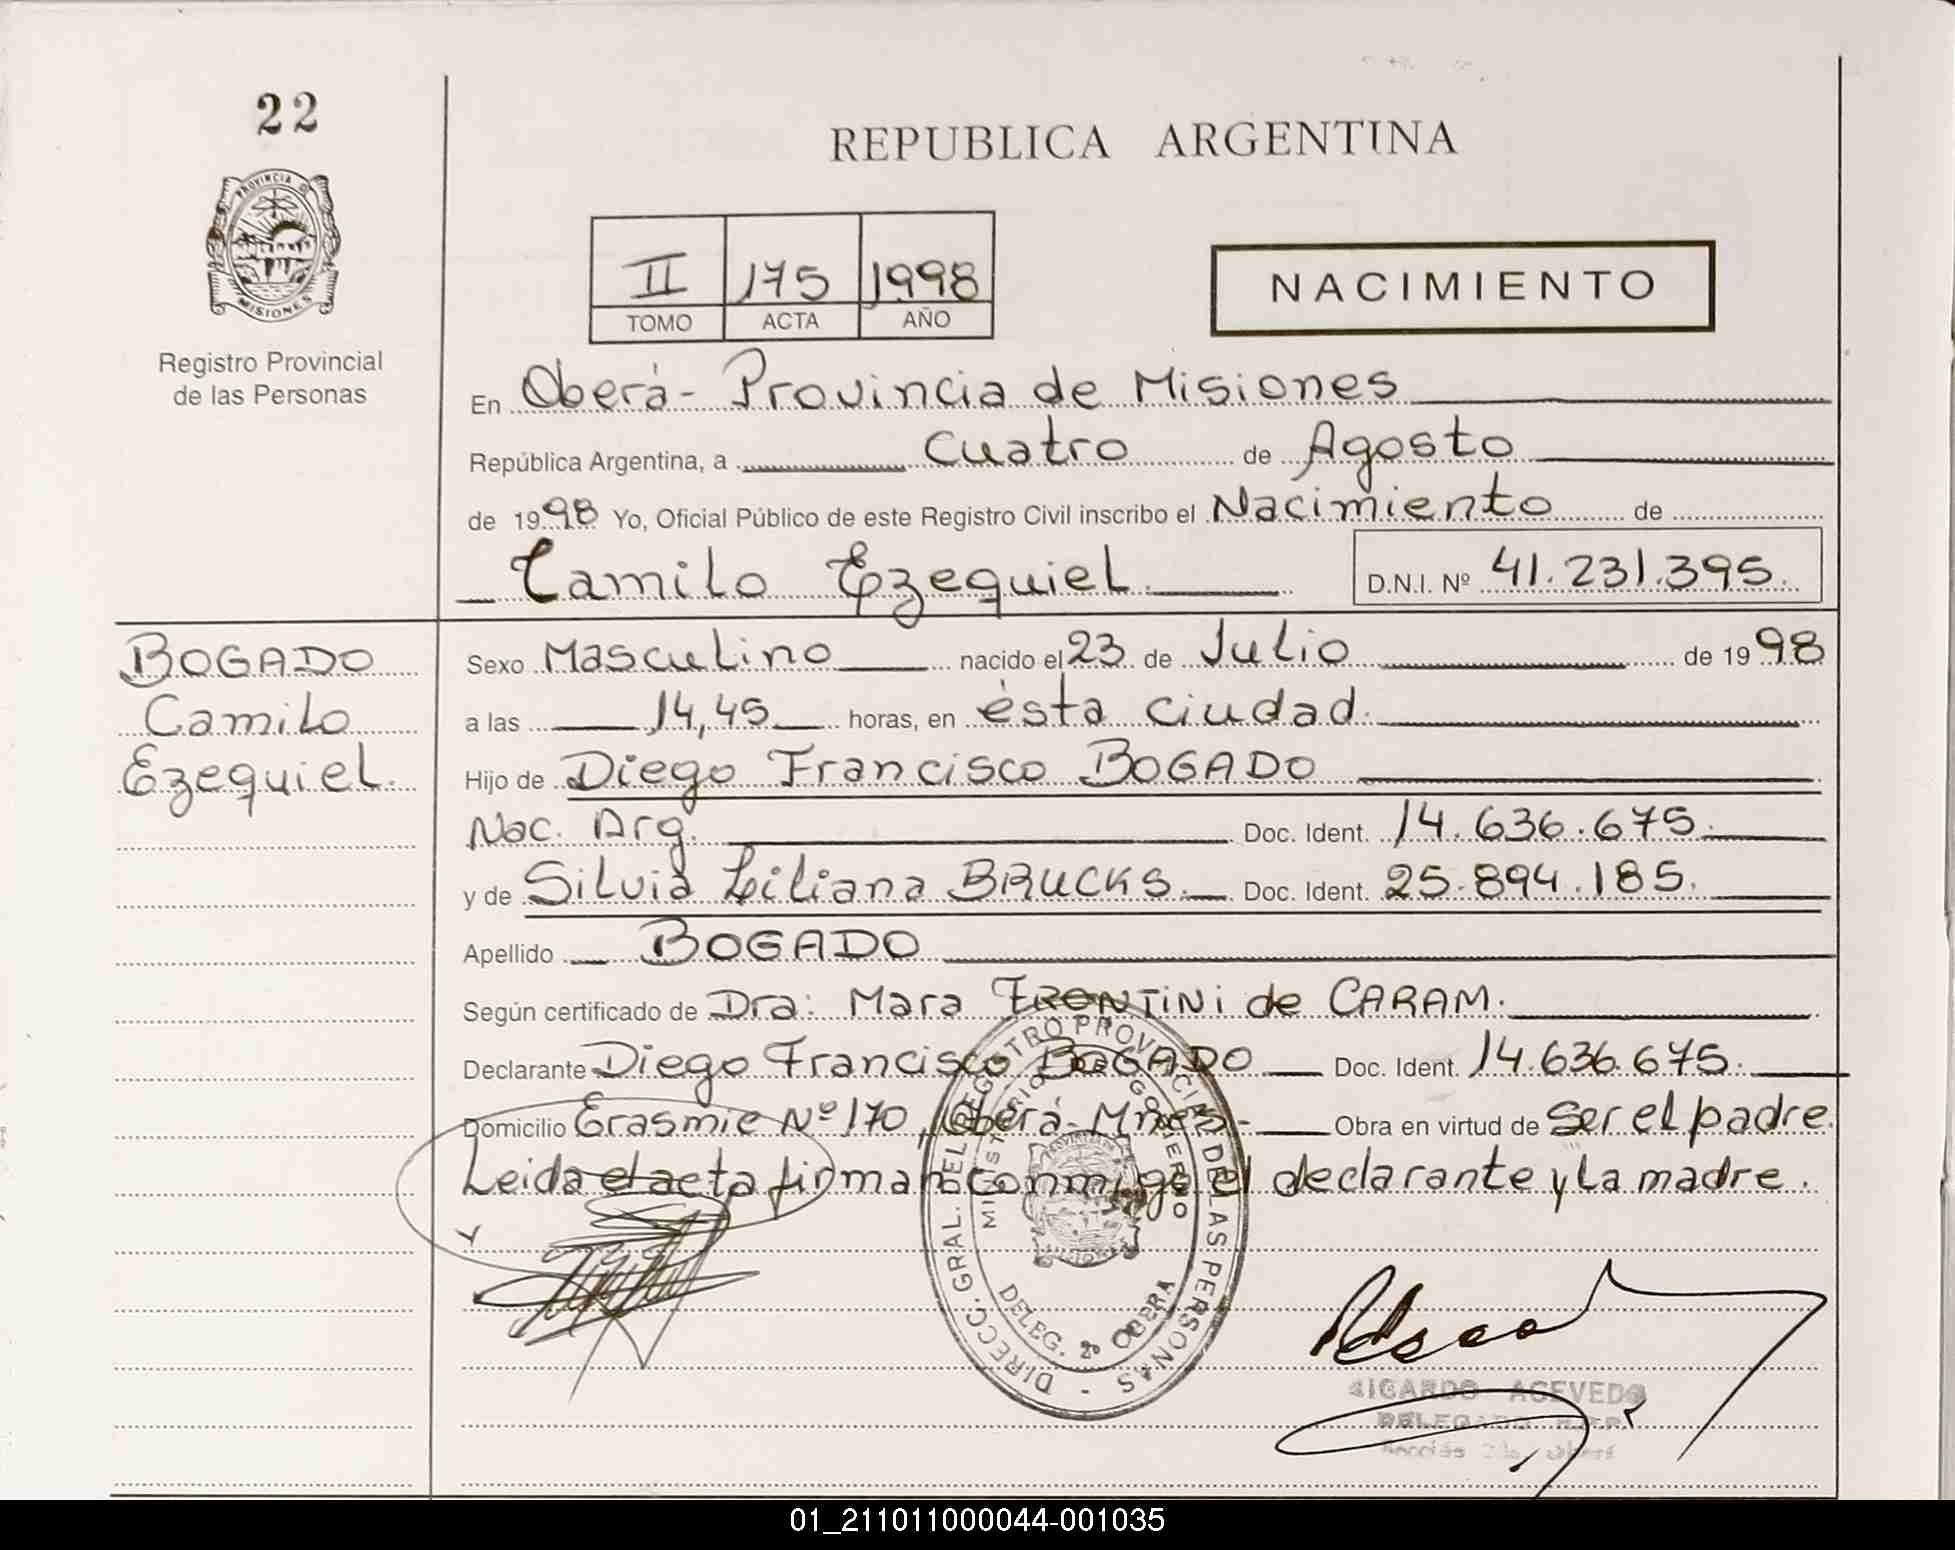 22
PROVINCIA D
MISIONES
Registro Provincial
de las Personas
REPUBLICA ARGENTINA
II 175 1998
TOMO ACTA AÑO
NACIMIENTO
En Oberá - Provincia de Misiones
República Argentina, a cuatro de Agosto
de 1998 Yo, Oficial Público de este Registro Civil inscribo el Nacimiento de
Camilo Ezequiel. D.N.I. Nº 41.231.395.
BOGADO
Camilo
Ezequiel.
Sexo Masculino nacido el 23 de Julio de 1998
a las 14,45 horas, en ésta ciudad.
Hijo de Diego Francisco BOGADO
Nac. Arg. Doc. Ident. 14.636.675.
y de Silvia Liliana BRUCKS. Doc. Ident. 25.894.185.
Apellido BOGADO
Según certificado de Dra: Mara FRONTINI de CARAM.
Declarante Diego Francisco BOGADO Doc. Ident. 14.636.675.
Domicilio Erasmie Nº 170, Oberá - Mnes - Obra en virtud de ser el padre.
Leida el acta firman conmigo el declarante y La madre.
DIRECC. GRAL. DEL REGISTRO PROVINCIAL DE LAS PERSONAS -
MINISTERIO DE GOBIERNO
DELEG. 2º OBERA
ACEVEDO
DELEGADO
01_211011000044-001035